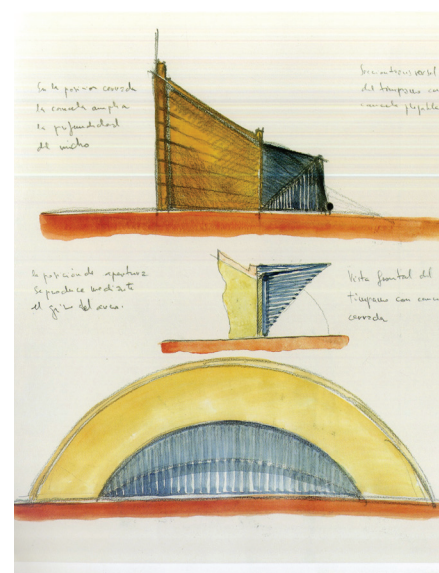 En la posición cerrada
la concela amplia
la profundidad
del nicho
Sección transversal
del tímpano con
plegable
la posición de apertura
se produce mediante
el giro del arco.
Vista frontal del
tímpano con
cerrada